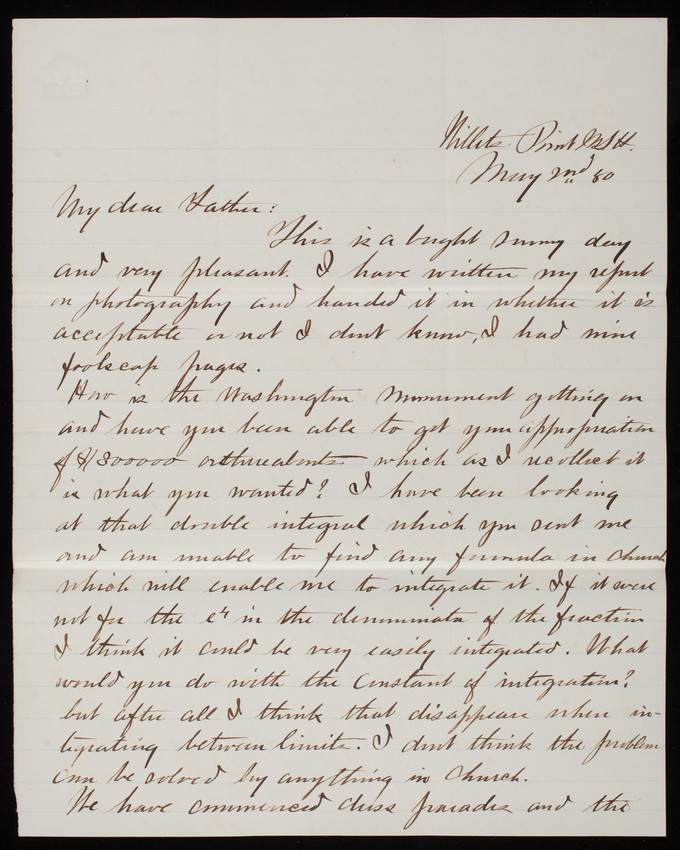 Willets Point N.Y.H.
May 2nd 80
My dear Father:
This is a bright sunny day
and very pleasant. I have written my report
on photography and handed it in whether it is
acceptable or not I dont know, I had nine
foolscap pages.
How is the Washington Monument getting on
and have you been able to get your appropriation
of $1300000 or thereabouts which as I recollect it
is what you wanted? I have been looking
at that double integral which you sent me
and am unable to find any formula in church
which will enable me to integrate it. If it were
not for the e in the denominator of the fraction
I think it could be very easily integrated. What
would you do with the constant of integration?
but after all I think that disappears when in-
tegrating between limits. I dont think the problem
can be solved by anything in church.
We have commenced dress parades and the